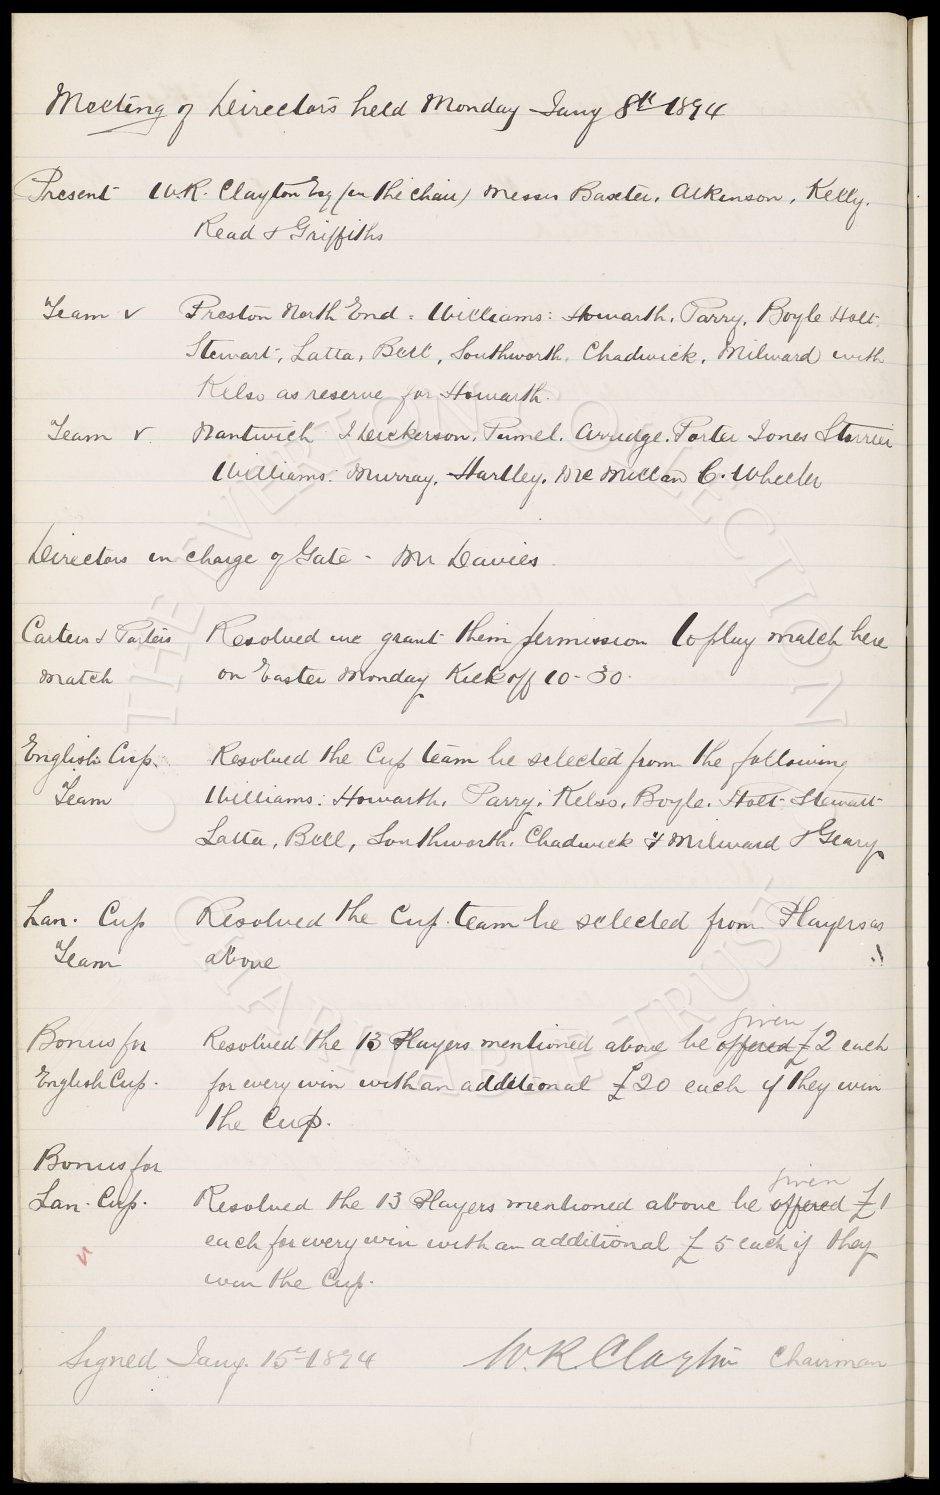 Meeting of Directors held Monday Jany 8th 1894
Present W.R. Clayton Esq (in the chair) Messrs Baxter, Atkinson, Kelly,
Read & Griffiths
Team v Preston North End = Williams: Howarth, Parry, Boyle Holt,
Stewart, Latta, Bell, Southworth, Chadwick, Milward with
Kelso as reserve for Howarth.
Team v Nantwich J Dickerson, Pinnel, Arridge, Porter Jones Storrier
Williams. Murray, Hartley, McMillan C. Wheeler
Directors in charge of Gate - Mr Davies
Carters & Porters Resolved we grant them permission to play match here
match on Easter Monday Kick off 10-30.
English Cup. Resolved the Cup team be selected from the following
Team Williams: Howarth, Parry, Kelso, Boyle, Holt Stewart
Latta, Bell, Southworth, Chadwick & Milward & Geary
Lan. Cup Resolved the Cup team be selected from Players as
Team above
given
Bonus for Resolved the 13 Players mentioned above be offered £2 each
English Cup. for every win with an additional £20 each if they win
the Cup.
Bonus for
given
Lan. Cup. Resolved the 13 Players mentioned above be offered £1
each for every win with an additional £5 each if they
win the Cup.
Signed Jany. 15th 1894 W.R. Clayton Chairman
© THE EVERTON COLLECTION
CHARITABLE TRUST